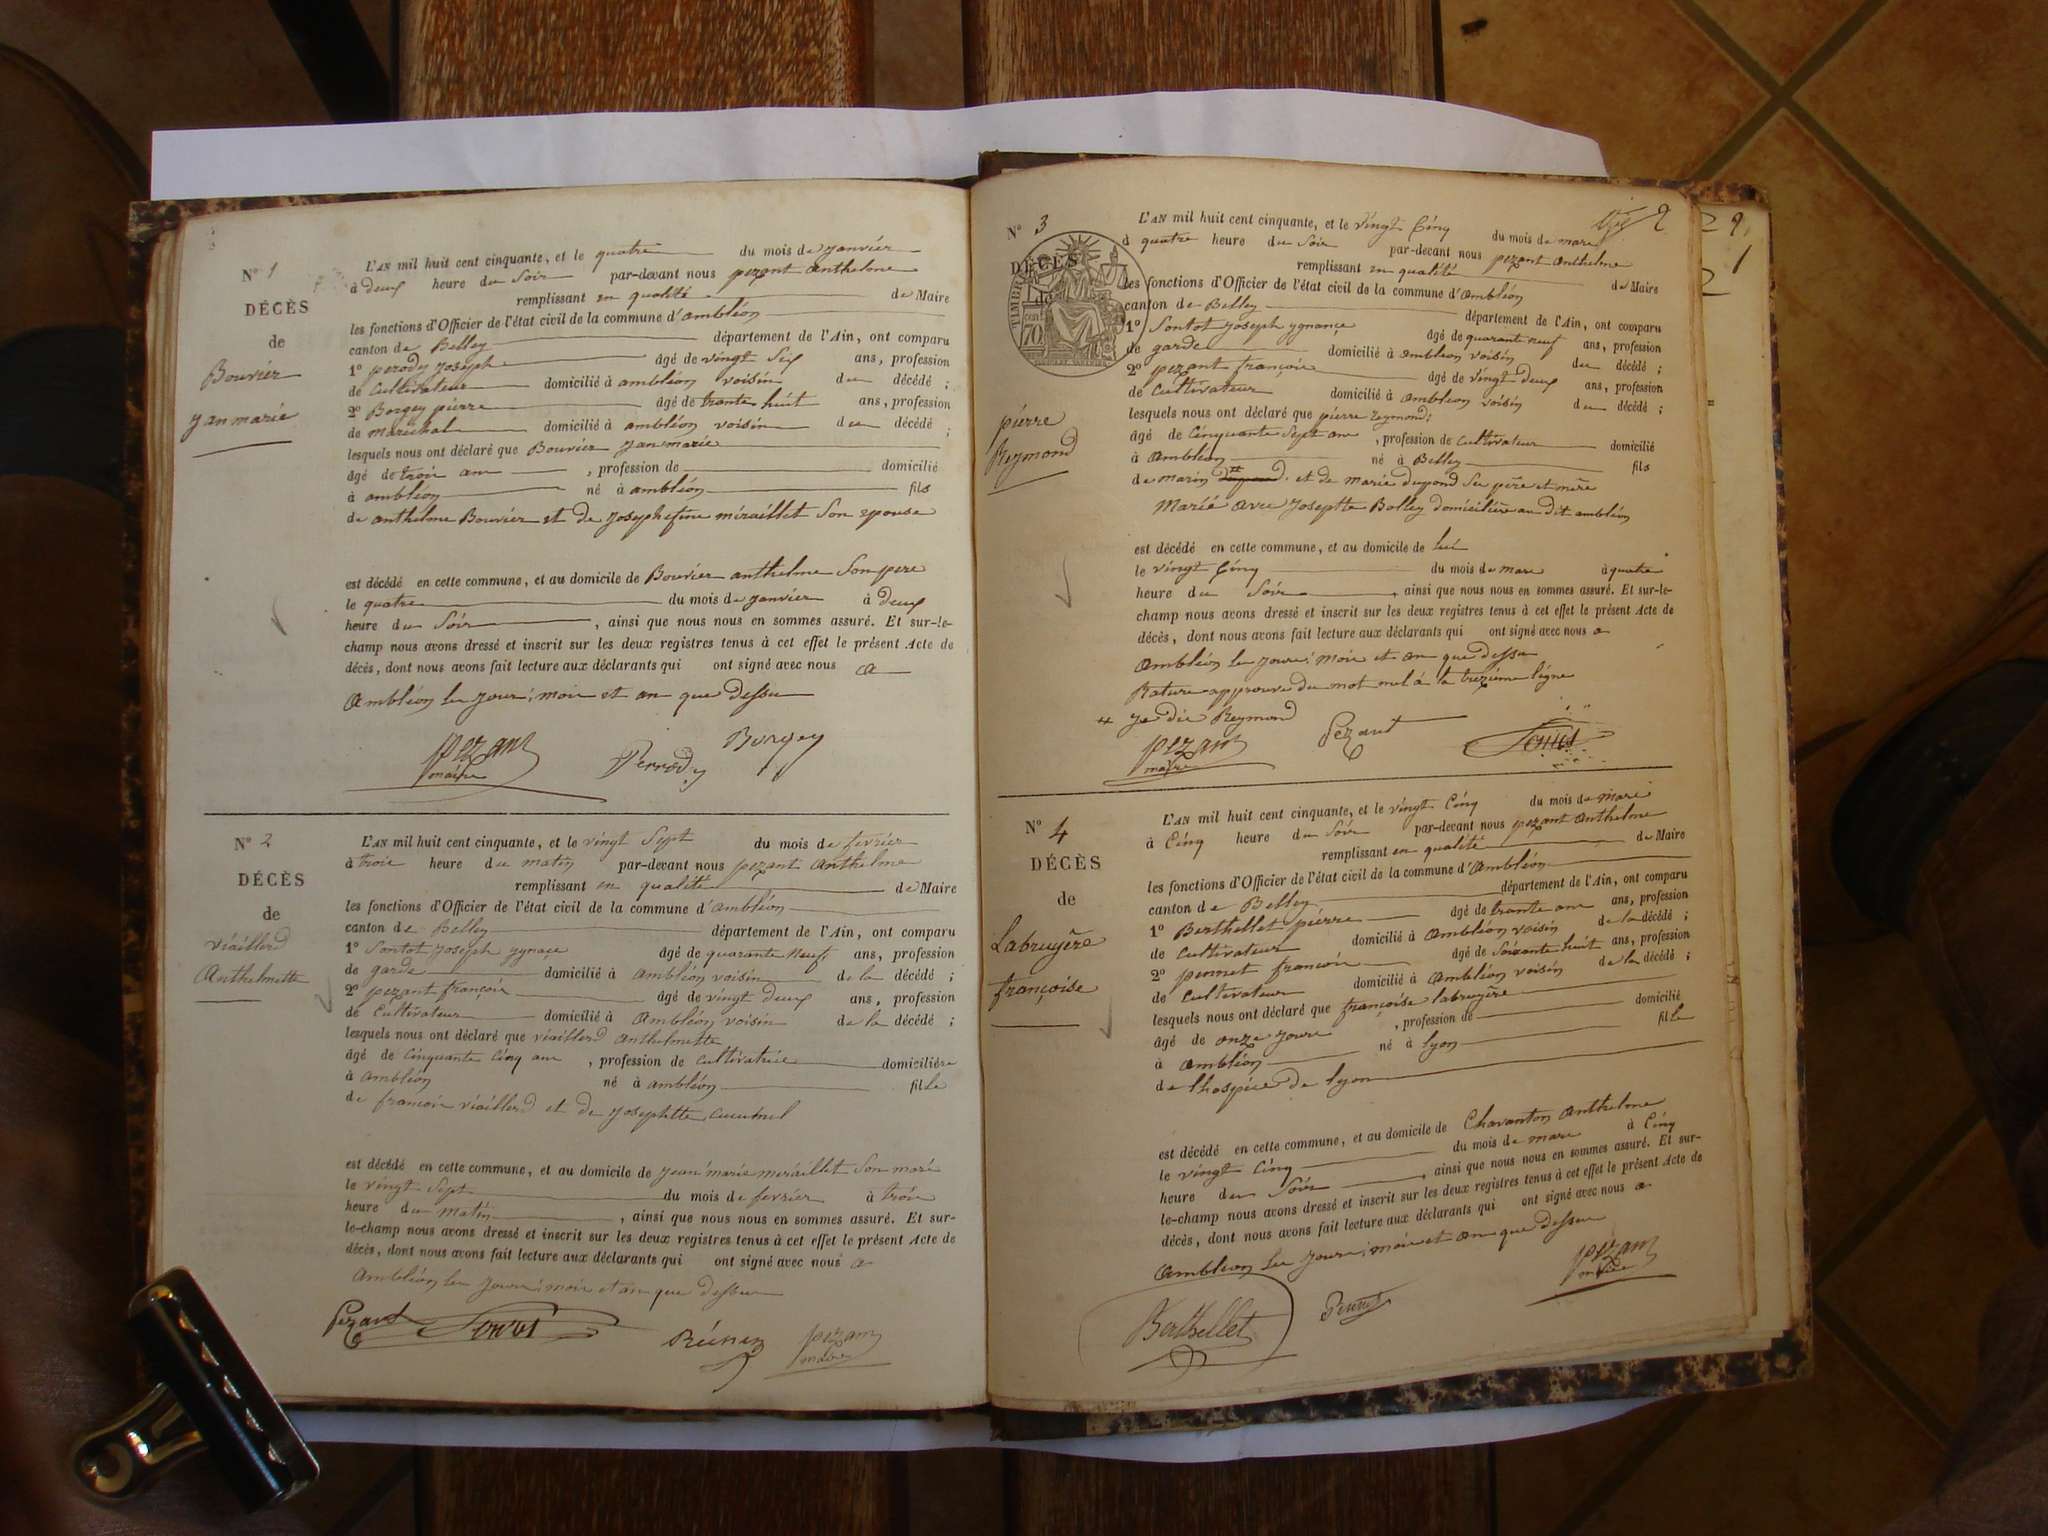 N° 1
DÉCÈS
de
Bouvier
yan marie
L'AN mil huit cent cinquante, et le quatre du mois de janvier
à deux heure du Soir par-devant nous pezant anthelme
remplissant en qualité de Maire
les fonctions d'Officier de l'état civil de la commune d'ambléon
canton de Belley département de l'Ain, ont comparu
1° perody joseph âgé de vingt Six ans, profession
de Cultivateur domicilié à ambléon voisin du décédé ;
2° Borgey pierre âgé de trante huit ans, profession
de maréchal domicilié à ambléon voisin du décédé ;
lesquels nous ont déclaré que Bouvier yan marie
âgé de troi an , profession de domicilié
à ambléon né à ambléon fils
de anthelme Bouvier et de josephetine miraillet Son epouse
est décédé en cette commune, et au domicile de Bouvier anthelme Son pere
le quatre du mois de janvier à deux
heure du Soir , ainsi que nous nous en sommes assuré. Et sur-le-
champ nous avons dressé et inscrit sur les deux registres tenus à cet effet le présent Acte de
décès, dont nous avons fait lecture aux déclarants qui ont signé avec nous a
Ambléon les jour, moi et an que dessu
pezant Perrody Borgey
maire
N° 2
DÉCÈS
de
viaillerd
Anthelmette
L'AN mil huit cent cinquante, et le vingt Sept du mois de fevrier
à troie heure du matin par-devant nous pezant Anthelme
remplissant en qualité de Maire
les fonctions d'Officier de l'état civil de la commune d'ambléon
canton de Belley département de l'Ain, ont comparu
1° Sontot joseph ygnace âgé de quarante Neuf ans, profession
de garde domicilié à Ambléon voisin de la décédé ;
2° pezant françoi âgé de vingt deux ans, profession
de Cultivateur domicilié à Ambléon voisin de la décédé ;
lesquels nous ont déclaré que viaillerd anthelmette
âgé de cinquante cinq an , profession de cultivatrice domicilière
à Ambléon né à ambléon fille
de françoi viaillerd et de josephtte
est décédé en cette commune, et au domicile de jean marie miraillet Son mari
le vingt Sept du mois de fevrier à troie
heure du matin , ainsi que nous nous en sommes assuré. Et sur-
le-champ nous avons dressé et inscrit sur les deux registres tenus à cet effet le présent Acte de
décès, dont nous avons fait lecture aux déclarants qui ont signé avec nous a
Ambléon les jour, moi et an que dessu
Pezant pezant
maire
2
N° 3
DÉCÈS
de
TIMBRE
70
pierre
Reymond
L'AN mil huit cent cinquante, et le vingt Cinq du mois de mars
à quatre heure du Soir par-devant nous pezant anthelme
remplissant en qualité de Maire
les fonctions d'Officier de l'état civil de la commune d'Ambléon
canton de Belley département de l'Ain, ont comparu
1° Sontot joseph ygnançe âgé de quarant neuf ans, profession
de garde domicilié à Ambléon voisin du décédé ;
2° pezant françoi âgé de vingt deux ans, profession
de Cultivateur domicilié à Ambléon voisin du décédé ;
lesquels nous ont déclaré que pierre reymond
âgé de Cinquante Sept an , profession de Cultivateur domicilié
à Ambléon né à Belley fils
de marin et de marie dupond Su père et mère
Marié avec josephtte Bolley domicilière au dit ambléon
est décédé en cette commune, et au domicile de lui
le vingt Cinq du mois de mars à quatre
heure du Soir , ainsi que nous nous en sommes assuré. Et sur-le-
champ nous avons dressé et inscrit sur les deux registres tenus à cet effet le présent Acte de
décès, dont nous avons fait lecture aux déclarants qui ont signé avec nous a
Ambléon les jour, moi et an que dessu
Rature approuve du mot nul à la treizième ligne
je die Reymond
pezant Pezant
maire
N° 4
DÉCÈS
de
Labruyère
françoise
L'AN mil huit cent cinquante, et le vingt Cinq du mois de mars
à Cinq heure du Soir par-devant nous pezant anthelme
remplissant en qualité de Maire
les fonctions d'Officier de l'état civil de la commune d'Ambléon
canton de Belley département de l'Ain, ont comparu
1° Berthellet pierre âgé de trante an ans, profession
de Cultivateur domicilié à Ambléon voisin de la décédé ;
2° pennet françoi âgé de Soixante huit ans, profession
de Cultivateur domicilié à Ambléon voisin de la décédé ;
lesquels nous ont déclaré que françoise labruyère
âgé de onze jour , profession de domicilié
à Ambléon né à lyon fille
de lhospice de lyon
est décédé en cette commune, et au domicile de Chavanton Anthelme
le vingt Cinq du mois de mars à Cinq
heure du Soir , ainsi que nous nous en sommes assuré. Et sur-
le-champ nous avons dressé et inscrit sur les deux registres tenus à cet effet le présent Acte de
décès, dont nous avons fait lecture aux déclarants qui ont signé avec nous a
Ambléon les jour, moi et an que dessu
Berthellet Pennet pezant
maire